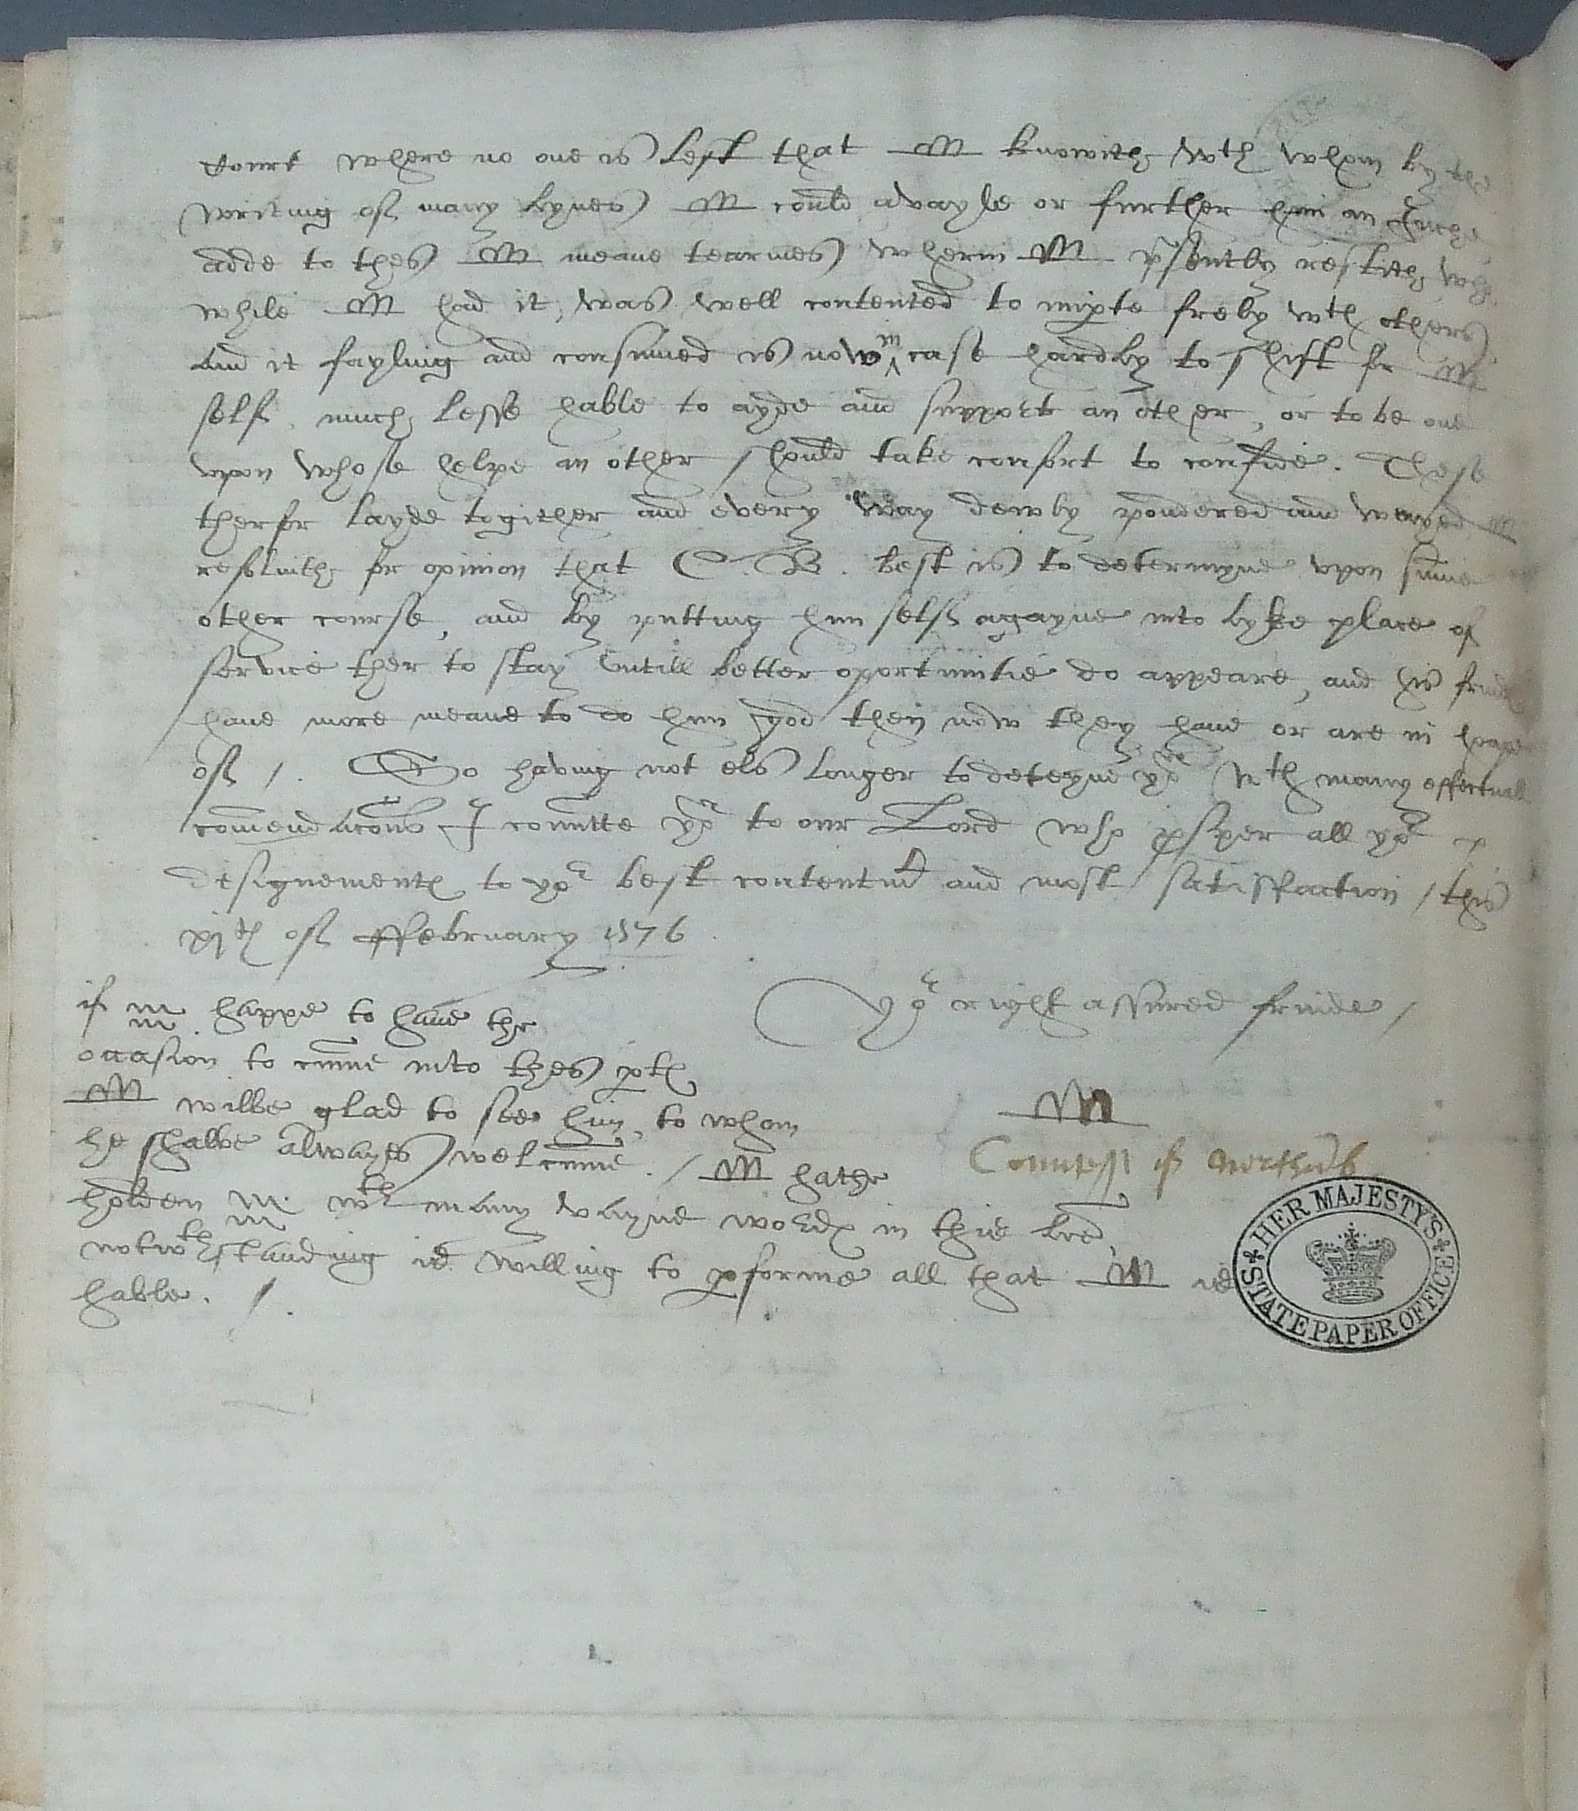 Court where no one is left that M knowith wth whom by the
writing of many lynes M could avayle or further him an Inche
adde to thes M meane tearmes wherin M psently restith, who
while M had it, was well contented to imparte frely wth others
And it fayling and consumed is now in case hardly to shift for M
self, much lesse hable to ayde and support an other, or to be one
vpon whose helpe an other should take confort to confide. These
therfor layde togither and every way dewly pondered and weyed M
resolvith for opinion that C. B. best is to determyne vpon summe
other course, and by putting him self agayne into lyke place of
service ther to stay vntill better oportunitie do appeare, and his frinds
haue more meane to do him good then now they haue or are in hope
of /. So having not els longer to deteyne yo wth many effectuall
comendacons I comitte yor to our Lord who psper all yor
designements to yor best contentmt and most satisfaction / this
xijth of ffebruary 1576.
yor right assured frinde /
M
Countess of Northub
if m happe to haue the
occasion to cumme into thes pts
M wilbe glad to see him, to whom
he shalbe alwayes welcumme. / M hathe
holden m wth many vayne words in this lre,
notwthstanding is willing to pforme all that M is
hable. /.
HER MAJESTY'S STATE PAPER OFFICE